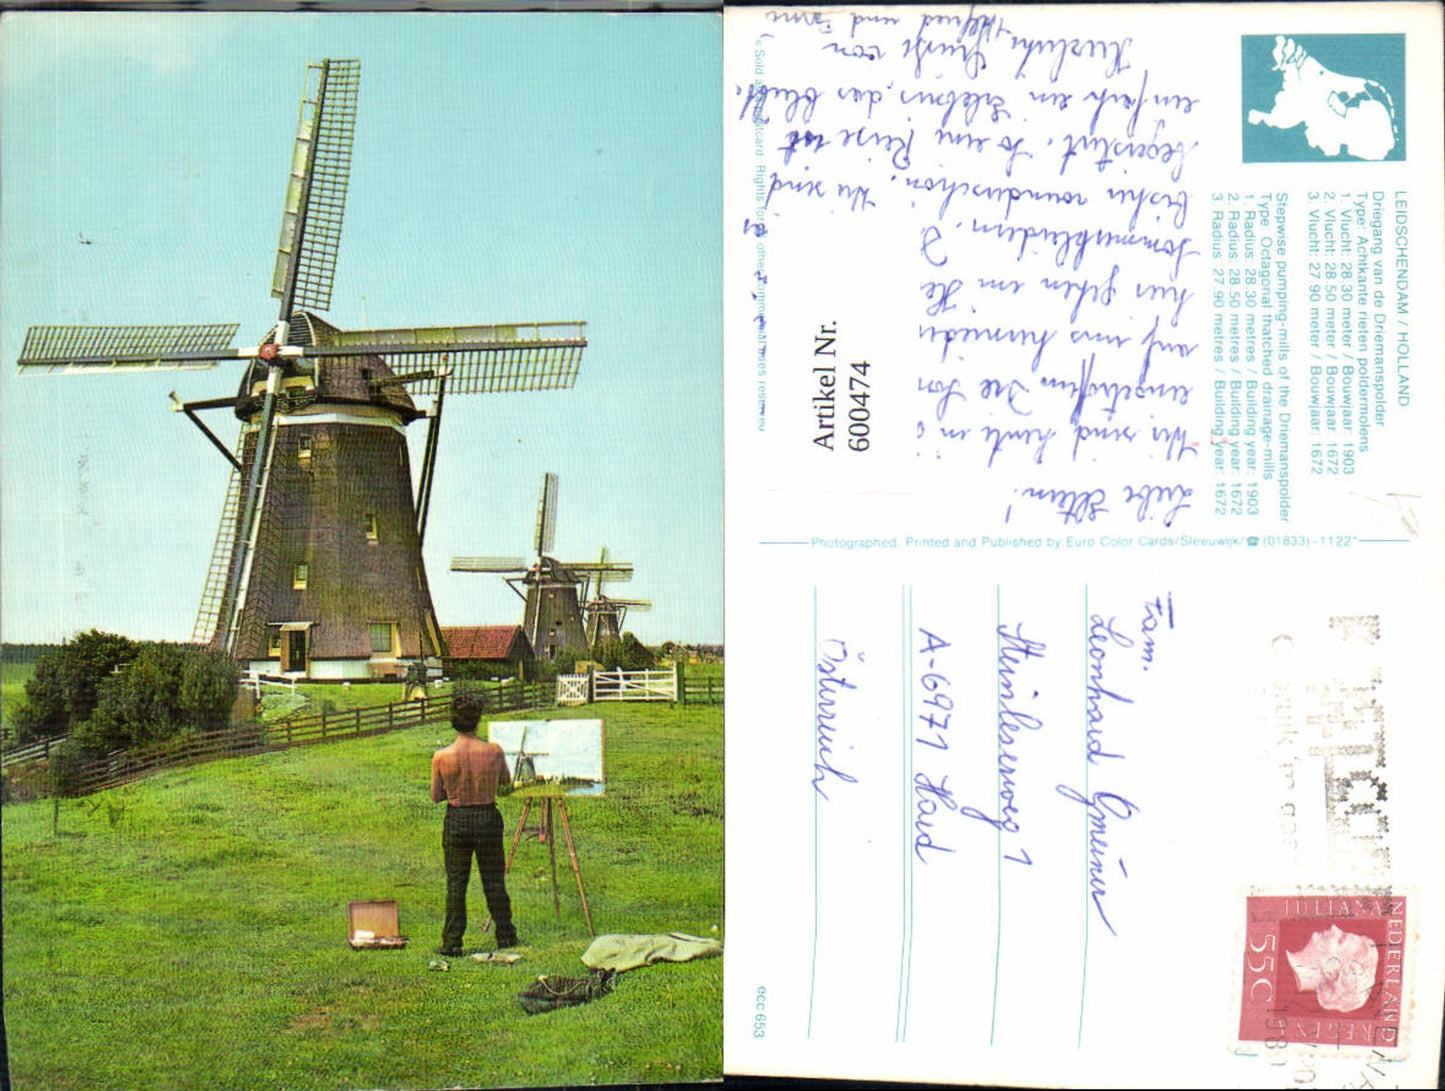 LEIDSCHENDAM / HOLLAND
Driegang van de Driemanspolder
Type: Achtkante rieten poldermolens
1. Vlucht: 28 30 meter / Bouwjaar: 1903
2. Vlucht: 28 50 meter / Bouwjaar: 1672
3. Vlucht: 27 90 meter / Bouwjaar: 1672
Stepwise pumping-mills of the Driemanspolder
Type: Octagonal thatched drainage-mills
1 Radius: 28 30 metres / Building year: 1903
2. Radius: 28 50 metres / Building year: 1672
3 Radius: 27 90 metres / Building year: 1672
Liebe Eltern!
Wir sind heute in
eingetroffen. Die Son
auf uns hernieder
hier gehen im
Sommerkleidern.
bisher wunderschön. Wir sind
begeistert. So eine Reise ist
einfach ein Erlebnis, das bleibt.
Herzlichst, Grüße von
und
Artikel Nr.
600474
© Sold as postcard. Rights for other commercial uses reserved
Photographed, Printed and Published by Euro Color Cards/Sleeuwijk/☎ (01833)-1122*
Fam.
Leonhard Gmeiner
Steinleserweg 1
A-6971 Hard
Österreich
NEDERLAND
JULIANA
REGINA
55C
ecc 653